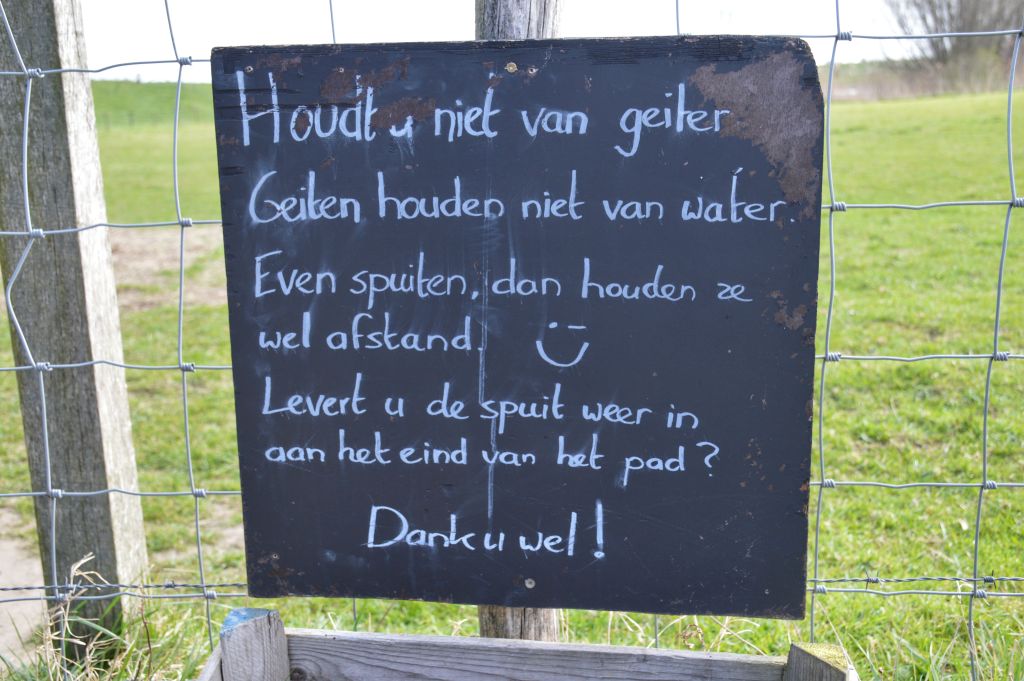 Houdt u niet van geiten
Geiten houden niet van water.
Even spuiten, dan houden ze
wel afstand
Levert u de spuit weer in
aan het eind van het pad?
Dank u wel!